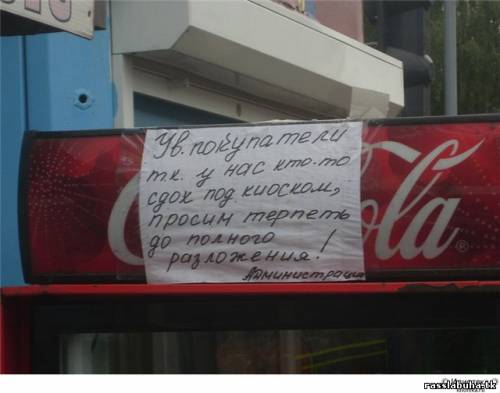 Ув. покупатели
т.к. у нас кто-то
сдох под киоском,
просим терпеть
до полного
разложения!
Администрация
Cola
®
rasslabuha.tk